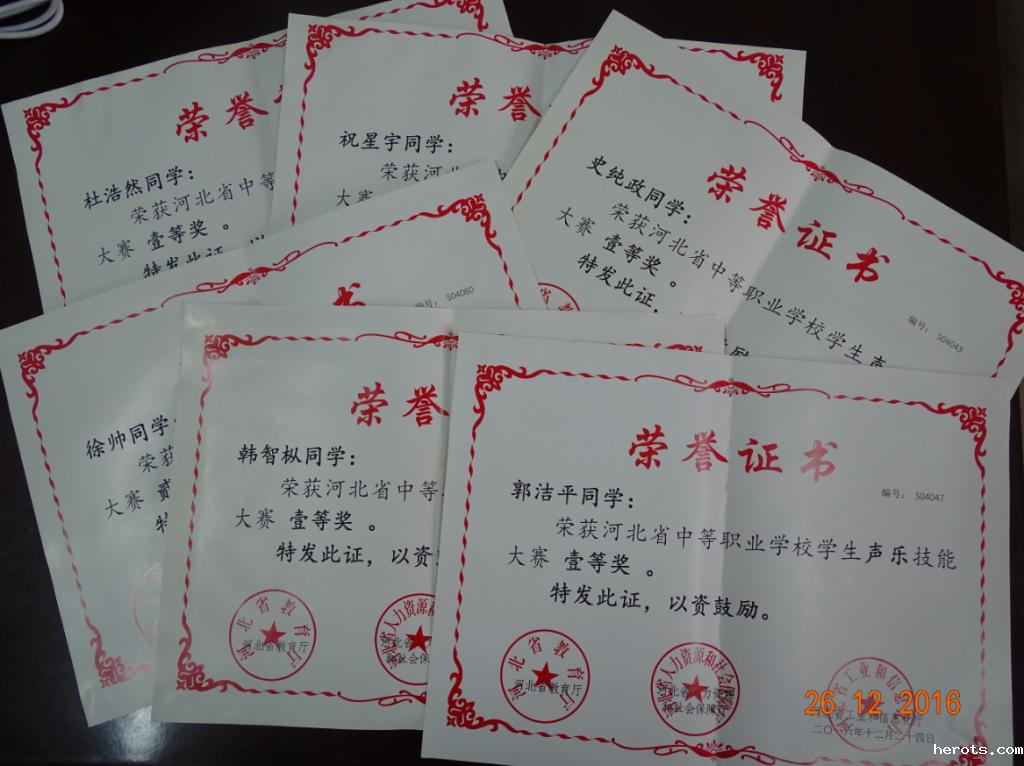 荣誉
杜浩然同学：
荣获河北省中等
大赛 壹等奖 。
特发此证，以
荣誉
祝星宇同学：
荣获河北
大赛
荣誉证书
编号： S04043
史纯政同学：
荣获河北省中等职业学校学生声
大赛 壹等奖 。
特发此证，
励
书
编号： S04060
徐帅同学
荣获
大赛 贰
特
荣誉
韩智枞同学：
荣获河北省中等
大赛 壹等奖 。
特发此证，以资
河北省教育厅
河北省教育厅
省人力资源和
和社会保障
荣誉证书
编号： S04047
郭洁平同学：
荣获河北省中等职业学校学生声乐技能
大赛 壹等奖 。
特发此证，以资鼓励。
河北省教育厅
河北省教育厅
河北省人力资源和社会保障厅
河北省人力资源
和社会保障厅
省工业和信息化厅
河北省工业和信息化厅
二〇一六年十二月二十四日
26 12 2016
herots.com